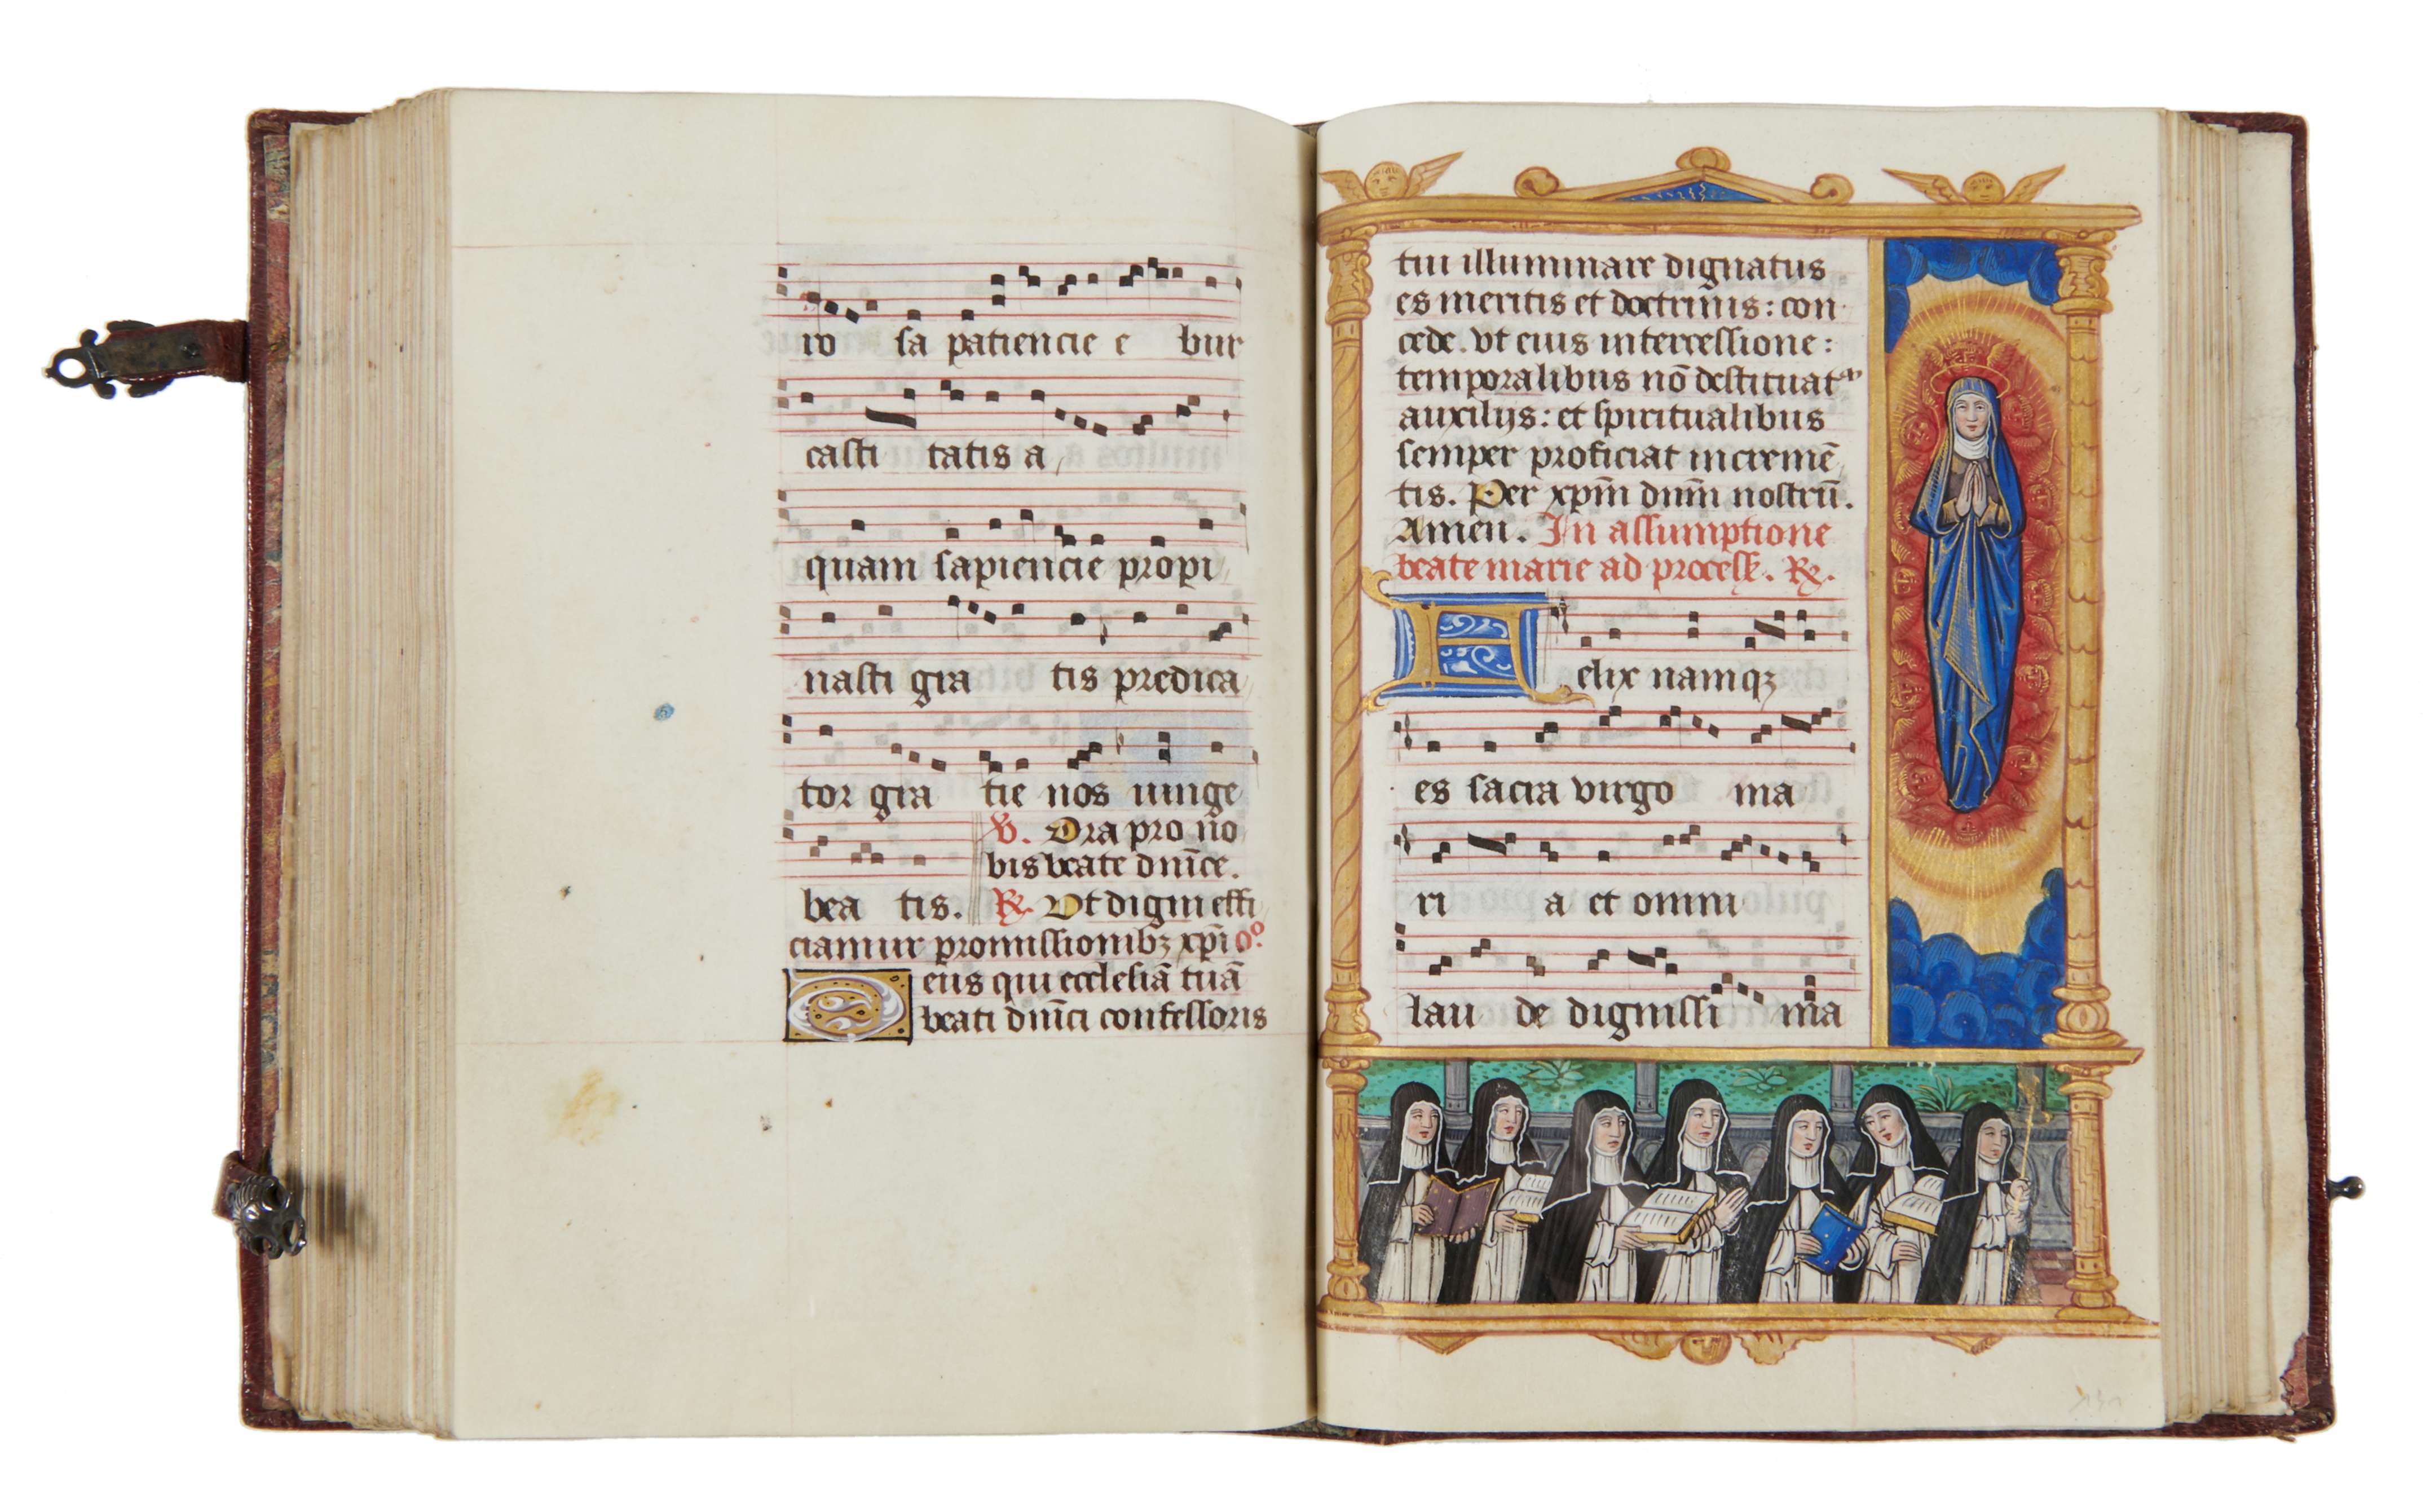 ro sa patiencie e bur
casti tatis a
quam sapiencie propi
nasti gra tis predica
tor gra tie nos iunge
℣. Ora pro no
bis beate dn̄ice.
bea tis. ℟. Vt digni effi
ciamur promissionibꝫ xp̄i oᵒ.
Deus qui ecclesiā tuā
beati dn̄ici confessoris
tui illuminare dignatus
es meritis et doctrinis: con
cede. vt eius intercessione:
temporalibus nō destituatᵘʳ
auxilijs: et spiritualibus
semper proficiat incremē
tis. Per xp̄m dn̄m nostrū.
Amen. In assumptione
beate marie ad process. ℟.
Felix namqꝫ
es sacra virgo ma
ri a et omni
lau de dignissi ma